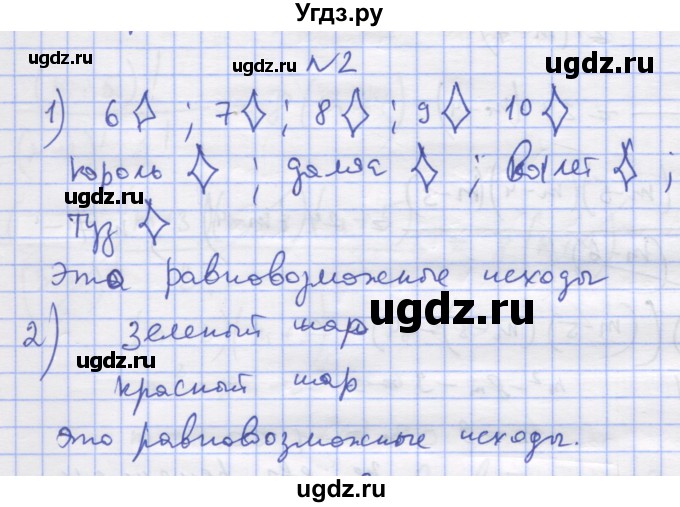 Угдз.ру
ugdz.ru ugdz.ru ugdz.ru
№2
1) 6♢; 7♢; 8♢; 9♢ 10♢
король ♢; дама ♢; валет ♢;
ugdz.ru ugdz.ru
туз ♢
Это равновозможные исходы
ugdz.ru
2) зеленый шар
ugdz.ru
красный шар
ugdz.ru
это равновозможные исходы.
ugdz.ru